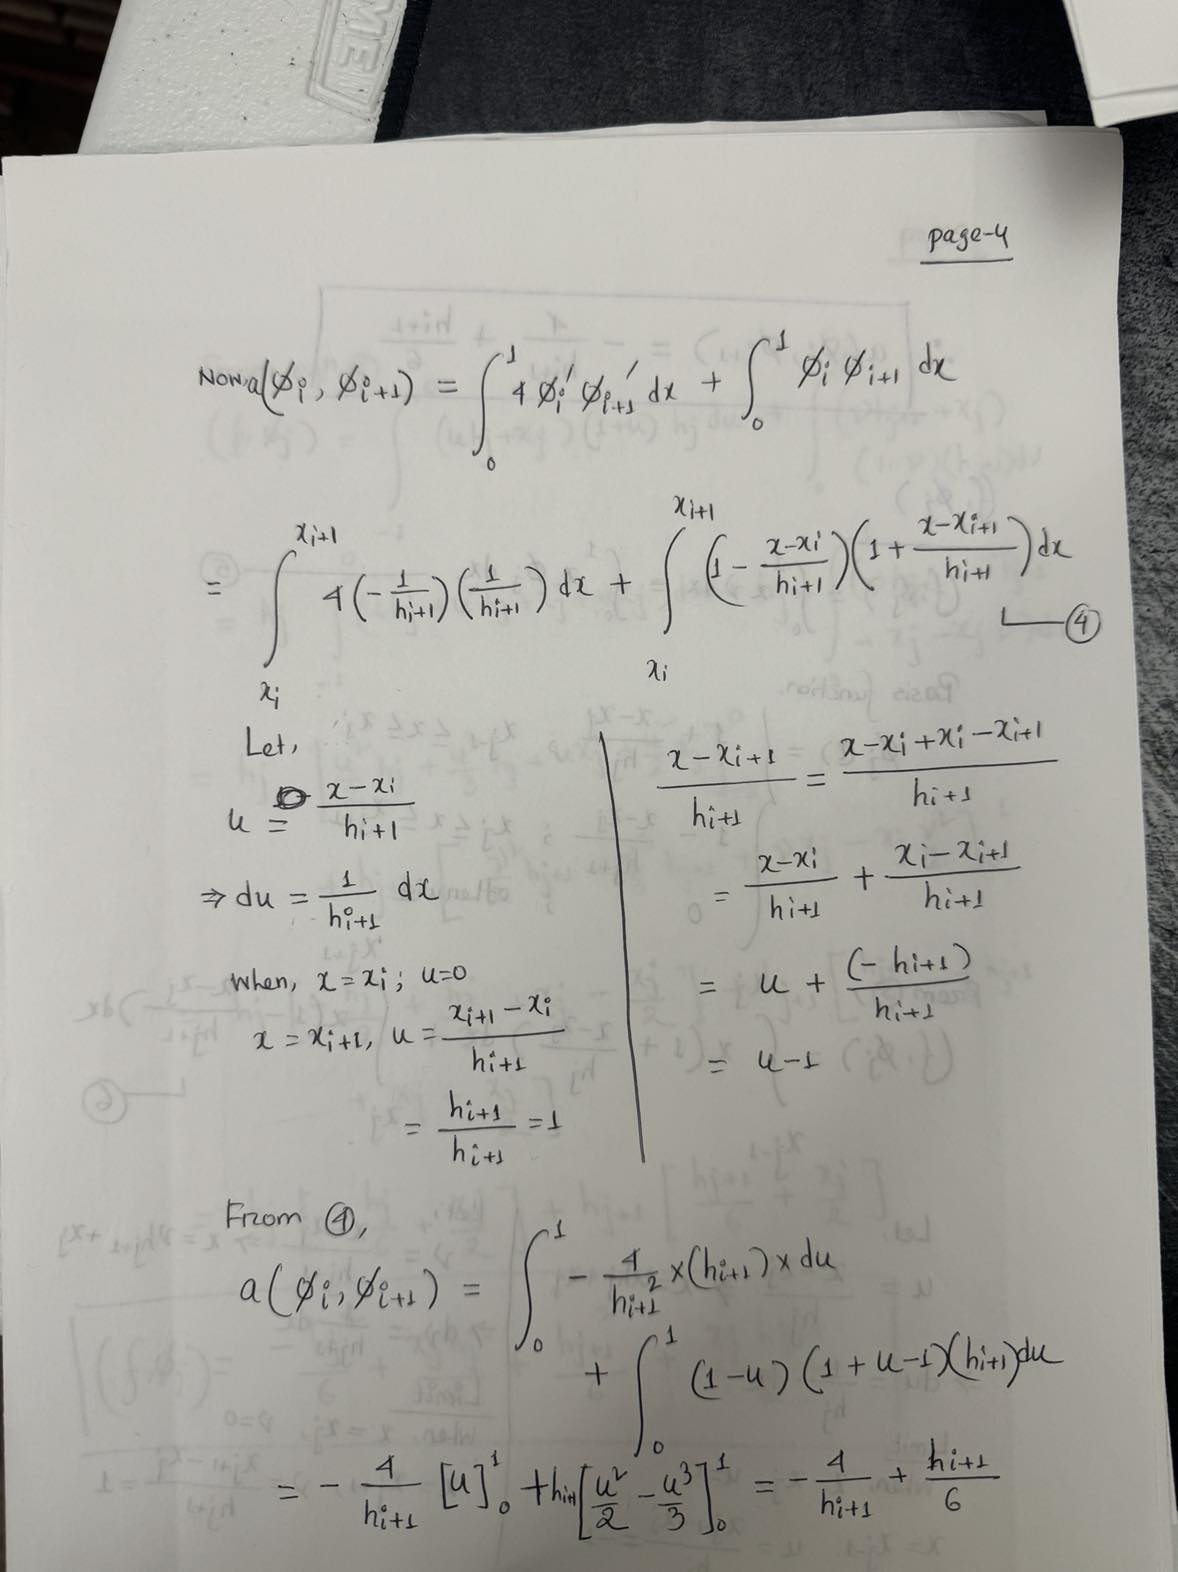 ME
page-4
Now a(φᵢ, φᵢ₊₁) = ∫₀¹ 4 φᵢ′ φᵢ₊₁′ dx + ∫₀¹ φᵢ φᵢ₊₁ dx
= ∫_{xᵢ}^{xᵢ₊₁} 4(-1/hᵢ₊₁)(1/hᵢ₊₁) dx + ∫_{xᵢ}^{xᵢ₊₁} (1 - (x-xᵢ)/hᵢ₊₁)(1 + (x-xᵢ₊₁)/hᵢ₊₁) dx
④
Let,
u = (x-xᵢ)/hᵢ₊₁
⇒ du = 1/hᵢ₊₁ dx
When, x = xᵢ; u=0
x = xᵢ₊₁, u = (xᵢ₊₁ - xᵢ)/hᵢ₊₁
= hᵢ₊₁/hᵢ₊₁ = 1
(x-xᵢ₊₁)/hᵢ₊₁ = (x-xᵢ+xᵢ-xᵢ₊₁)/hᵢ₊₁
= (x-xᵢ)/hᵢ₊₁ + (xᵢ-xᵢ₊₁)/hᵢ₊₁
= u + (-hᵢ₊₁)/hᵢ₊₁
= u-1
From ④,
a(φᵢ, φᵢ₊₁) = ∫₀¹ - 4/hᵢ₊₁² × (hᵢ₊₁) × du
+ ∫₀¹ (1-u) (1+u-1)(hᵢ₊₁)du
= - 4/hᵢ₊₁ [u]₀¹ + hᵢ₊₁[u²/2 - u³/3]₀¹ = - 4/hᵢ₊₁ + hᵢ₊₁/6